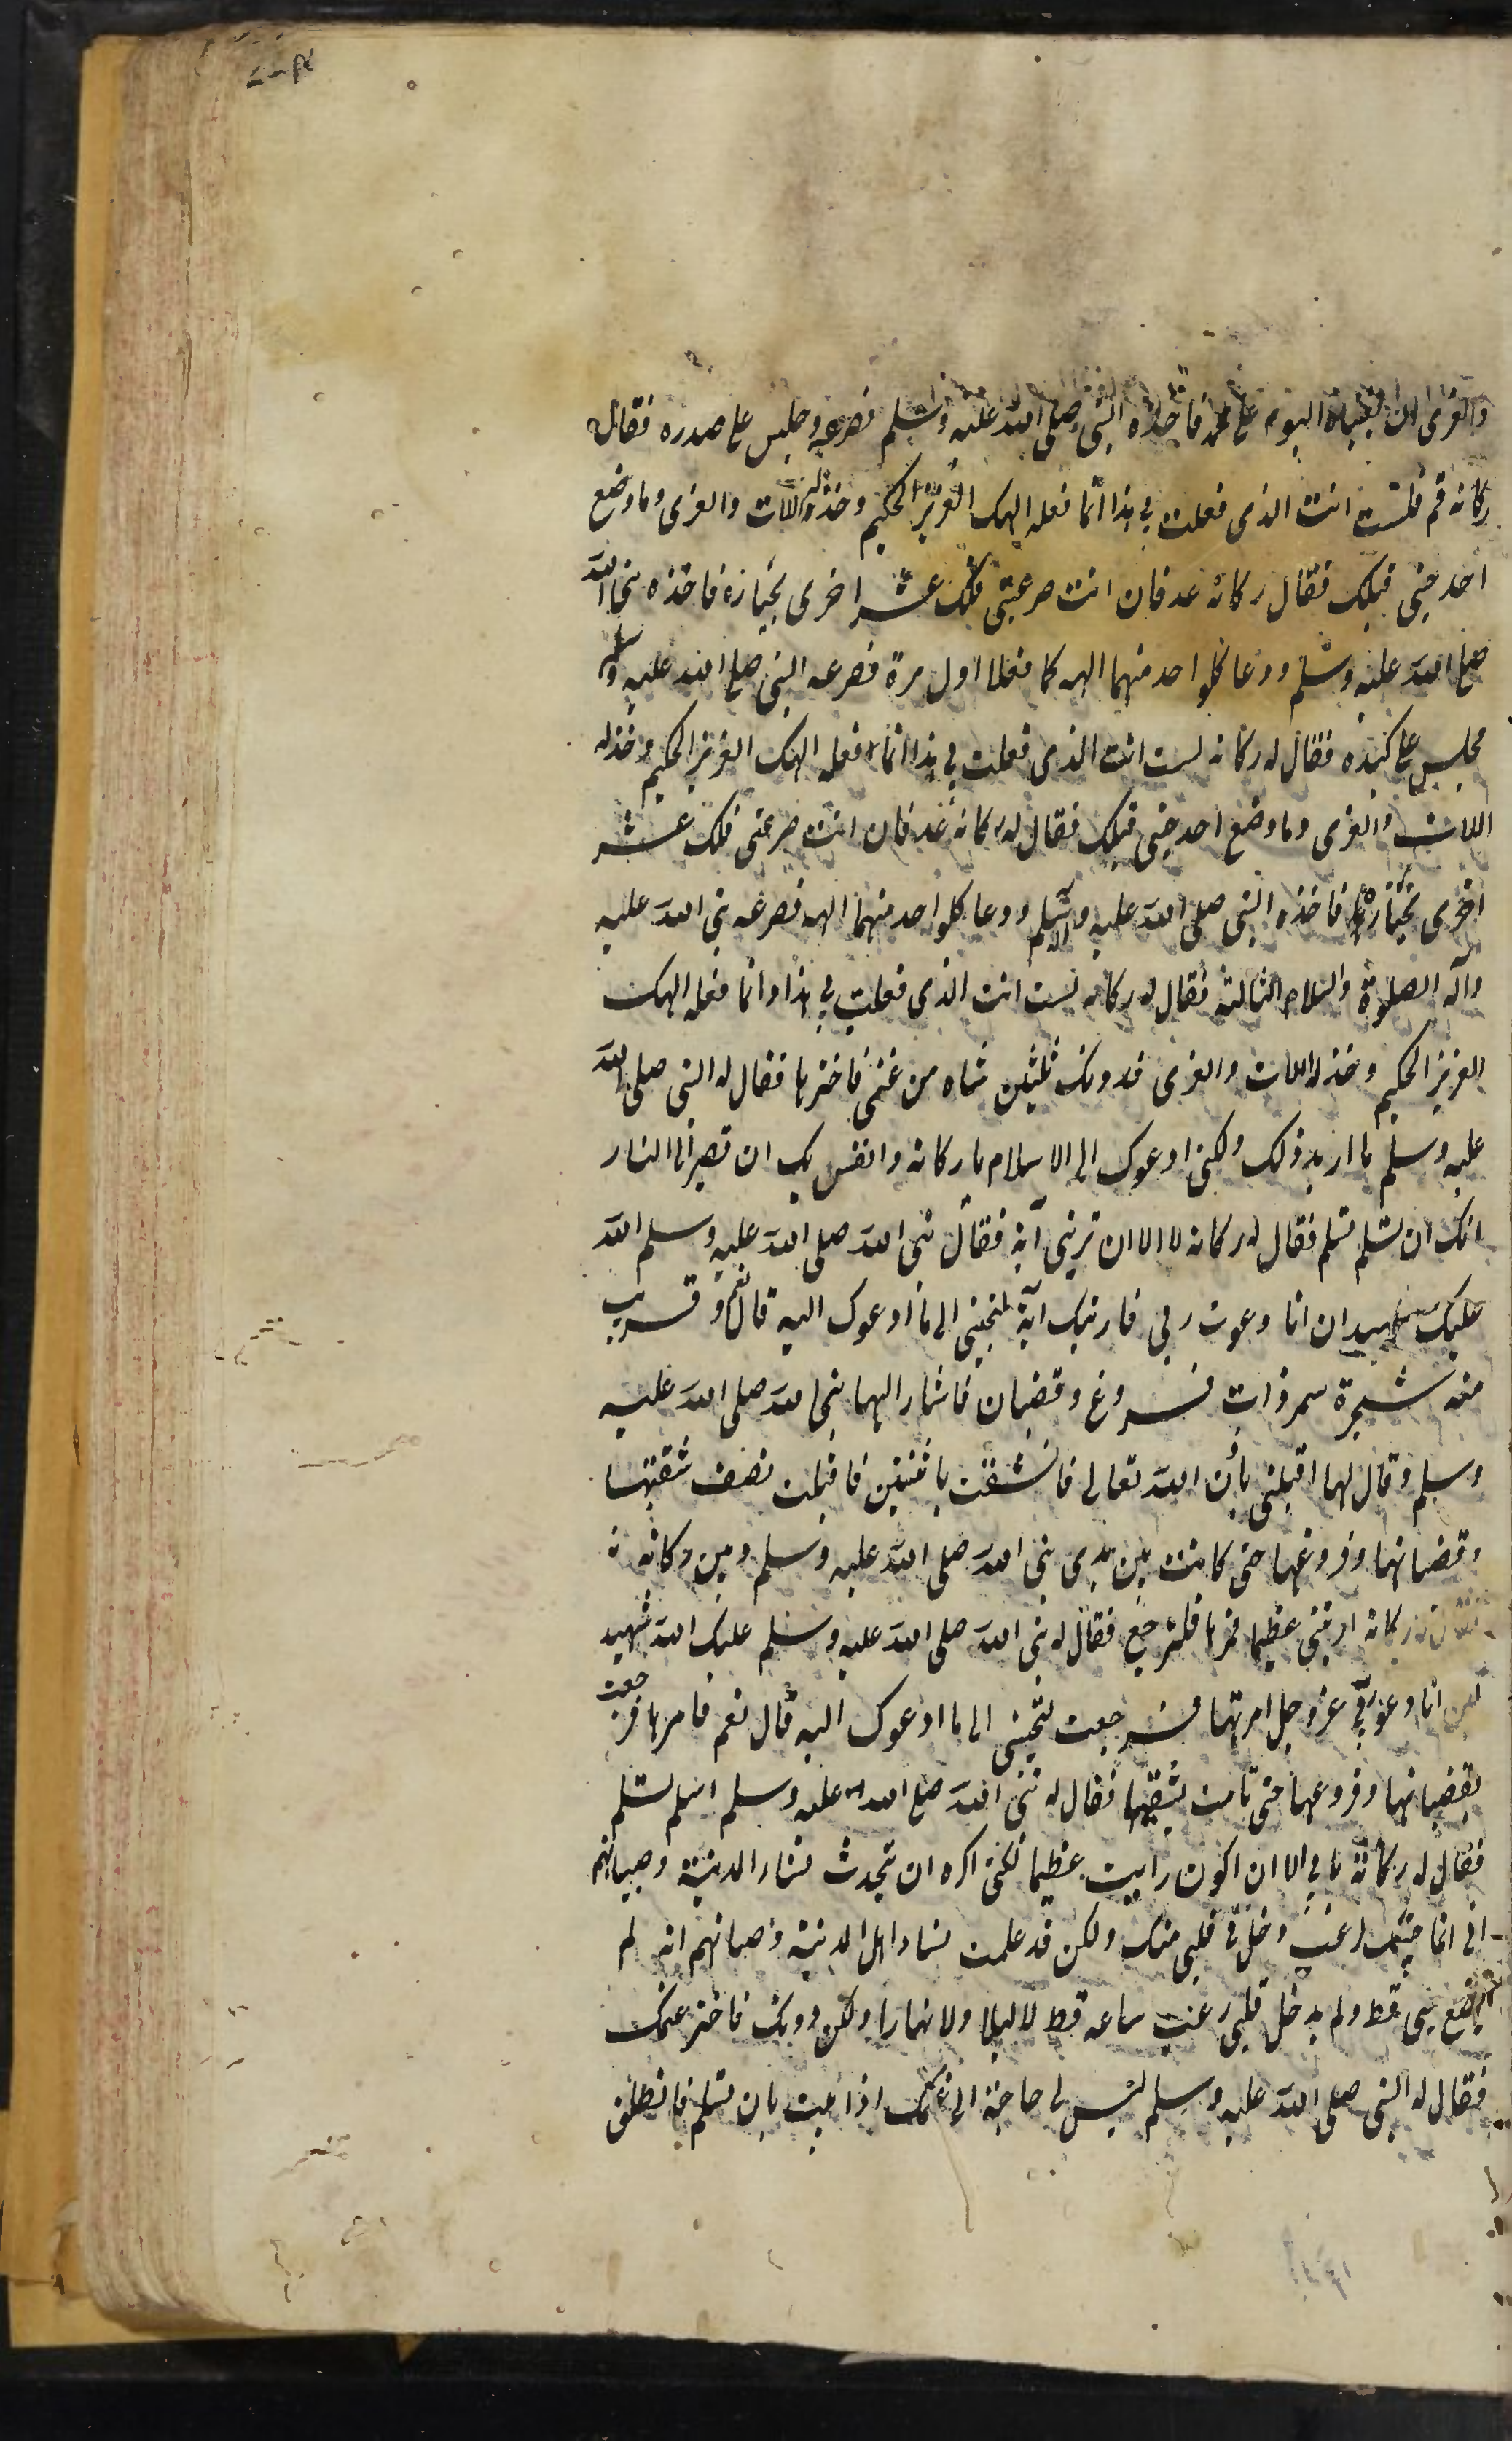 والعزى ان اليوم على محمد فاخذه النبى صلى الله عليه وسلم فصرعه وجلس على صدره فقال
ركانه قم فلست انت الذى فعلت بى هذا انما فعله الهك العزيز الحكيم وخذله اللات والعزى وما وضع
احد جنبى قبلك فقال ركانه عد فان انت صرعتنى فلك عشر اخرى تختارها فاخذه نبى الله
صلى الله عليه وسلم ودعا كلواحد منهما الهه كما فعلا اول مرة فصرعه النبى صلى الله عليه وسلم
فجلس على كبده فقال له ركانه لست انت الذى فعلت بى هذا انما فعله الهك العزيز الحكيم وخذله
اللات والعزى وما وضع احد جنبى قبلك فقال له ركانه عد فان انت صرعتنى فلك عشر
اخرى تختارها فاخذه النبى صلى الله عليه وآله وسلم ودعا كلواحد منهما الهه فصرعه نبى الله عليه
وآله الصلوة والسلام الثالثة فقال له ركانه لست انت الذى فعلت بى هذا وانما فعله الهك
العزيز الحكيم وخذله اللات والعزى فدونك ثلثين شاه من غنمى فاخترها فقال له النبى صلى الله
عليه وسلم ما اريد ذلك ولكنى ادعوك الى الاسلام يا ركانه وانفس بك ان تصير الى النار
انك ان تسلم تسلم فقال له ركانه لا الا ان ترينى آية فقال نبى الله صلى الله عليه وسلم الله
عليك شهيد ان انا دعوت ربى فاريتك آية لتجيبنى الى ما ادعوك اليه قال نعم و قريب
منه شجرة سمر ذات فروع وقضبان فاشار اليها نبى الله صلى الله عليه
وسلم وقال لها اقبلى بأذن الله تعالى فانشقت باثنتين فاقبلت نصف شقتها
وقضبانها وفروعها حتى كانت بين يدى نبى الله صلى الله عليه وسلم وبين ركانه
فقال له ركانه اريتنى عظيما فمرها فلترجع فقال له نبى الله صلى الله عليه وسلم عليك الله شهيد
لئن انا دعوت ربى عز وجل امرتها فرجعت لتجيبنى الى ما ادعوك اليه قال نعم فامرها فرجعت
بقضبانها وفروعها حتى تامت بشقيها فقال له نبى الله صلى الله عليه وسلم اسلم تسلم
فقال له ركانة ما بى الا ان اكون رايت عظيما لكنى اكره ان تتحدث نساء المدينة وصبيانهم
انى انما جبتك لرعب دخل فى قلبى منك ولكن قد علمت نساء اهل المدينة وصبيانهم انه لم
يضع جنبى قط ولم يدخل قلبى رعب ساعه قط لا ليلا ولا نهارا ولكن دونك فاختر غنمك
فقال له النبى صلى الله عليه وسلم ليس لى حاجة الى غنمك اذا ابيت بان تسلم فانطلق